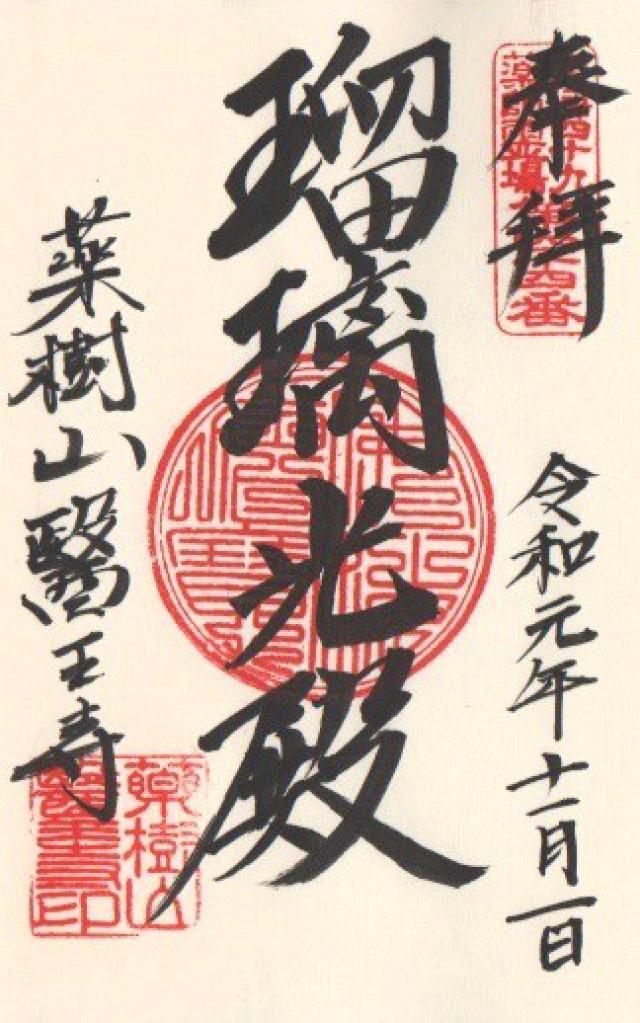 奉拝
令和元年十一月一日
瑠璃光殿
薬樹山醫王寺
薬樹山
醫王寺印